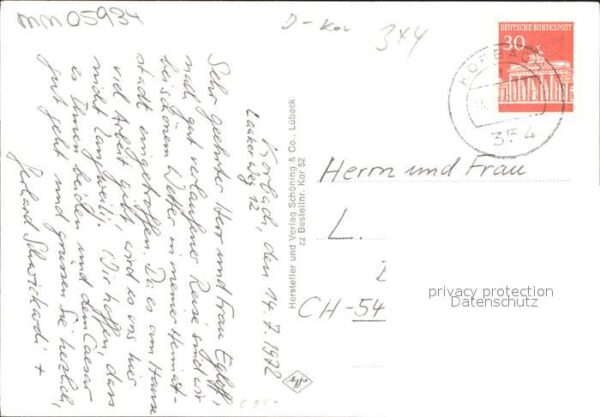 mm05934
D-Kor
344
DEUTSCHE BUNDESPOST
30
KORBACH
354
Korbach, den 14.7.1972
Laaker Weg 12
Sehr geehrter Herr und Frau Egloff,
nach gut verlaufener Reise sind wir
bei schönem Wetter in meiner Heimat-
stadt eingetroffen. Da es am Hause
viel Arbeit gibt, wird es uns hier
nicht langweilig. Wir hoffen, dass
es Ihnen beiden und dem Caesar
gut geht und grüssen Sie herzlich,
Gerhard +
Hersteller und Verlag Schöning & Co., Lübeck
zz Bestellnr. Kor 52
Herrn und Frau
L.
CH-54
privacy protection
Datenschutz